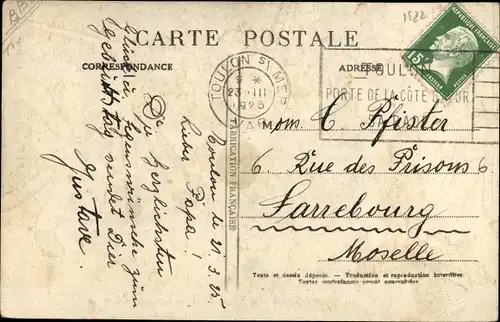 1522
CARTE POSTALE
CORRESPONDANCE
ADRESSE
TOULON S MER
23 III
1925
VAR
PORTE DE LA CÔTE D'AZUR
REPUBLIQUE FRANCAISE
15c
POSTES
Toulon le 21.3.25
Lieber Papa!
Die herzlichsten
Glück u. Segenswünsche zum
Geburtstag sendet Dier
Gustave.
FABRICATION FRANÇAISE
Mons. C. Pfister
6 Rue des Prisons 6
Sarrebourg
Moselle
Texte et dessin déposés. - Traduction et reproduction interdites.
Toutes contrefaçons seront poursuivies.